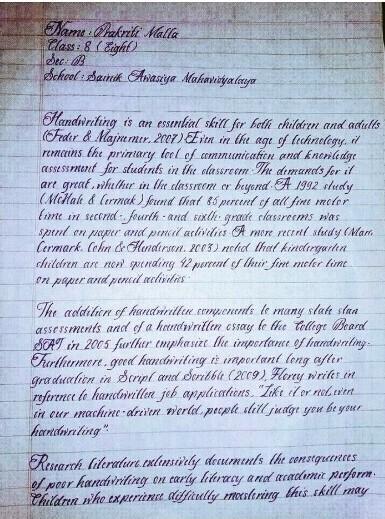 Name : Prakriti Malla
Class : 8 (Eight)
Sec : B
School : Sainik Awasiya Mahavidyalaya
Handwriting is an essential skill for both children and adults
(Feder & Majnemer, 2007) Even in the age of technology, it
remains the primary tool of communication and knowledge
assessment for students in the classroom. The demands for it
are great, whether in the classroom or beyond. A 1992 study
(McHale & Cermak) found that 85 percent of all fine motor
time in second-, fourth- and sixth- grade classrooms was
spent on paper and pencil activities. A more recent study (Marr,
Cermark, Cohn & Henderson, 2003) noted that kindergarten
children are now spending 42 percent of their fine motor time
on paper and pencil activities
The addition of handwritten components to many state stan
assessments and of a handwritten essay to the College Board
SAT in 2005 further emphasize the importance of handwriting.
Furthermore, good handwriting is important long after
graduation in Script and Scribble (2009), Florey writes in
reference to handwritten job applications, "Like it or not, even
in our machine-driven world, people still judge you be your
handwriting".
Research literature extensively documents the consequences
of poor handwriting on early literacy and academic perform-
Children who experience difficulty mastering this skill may